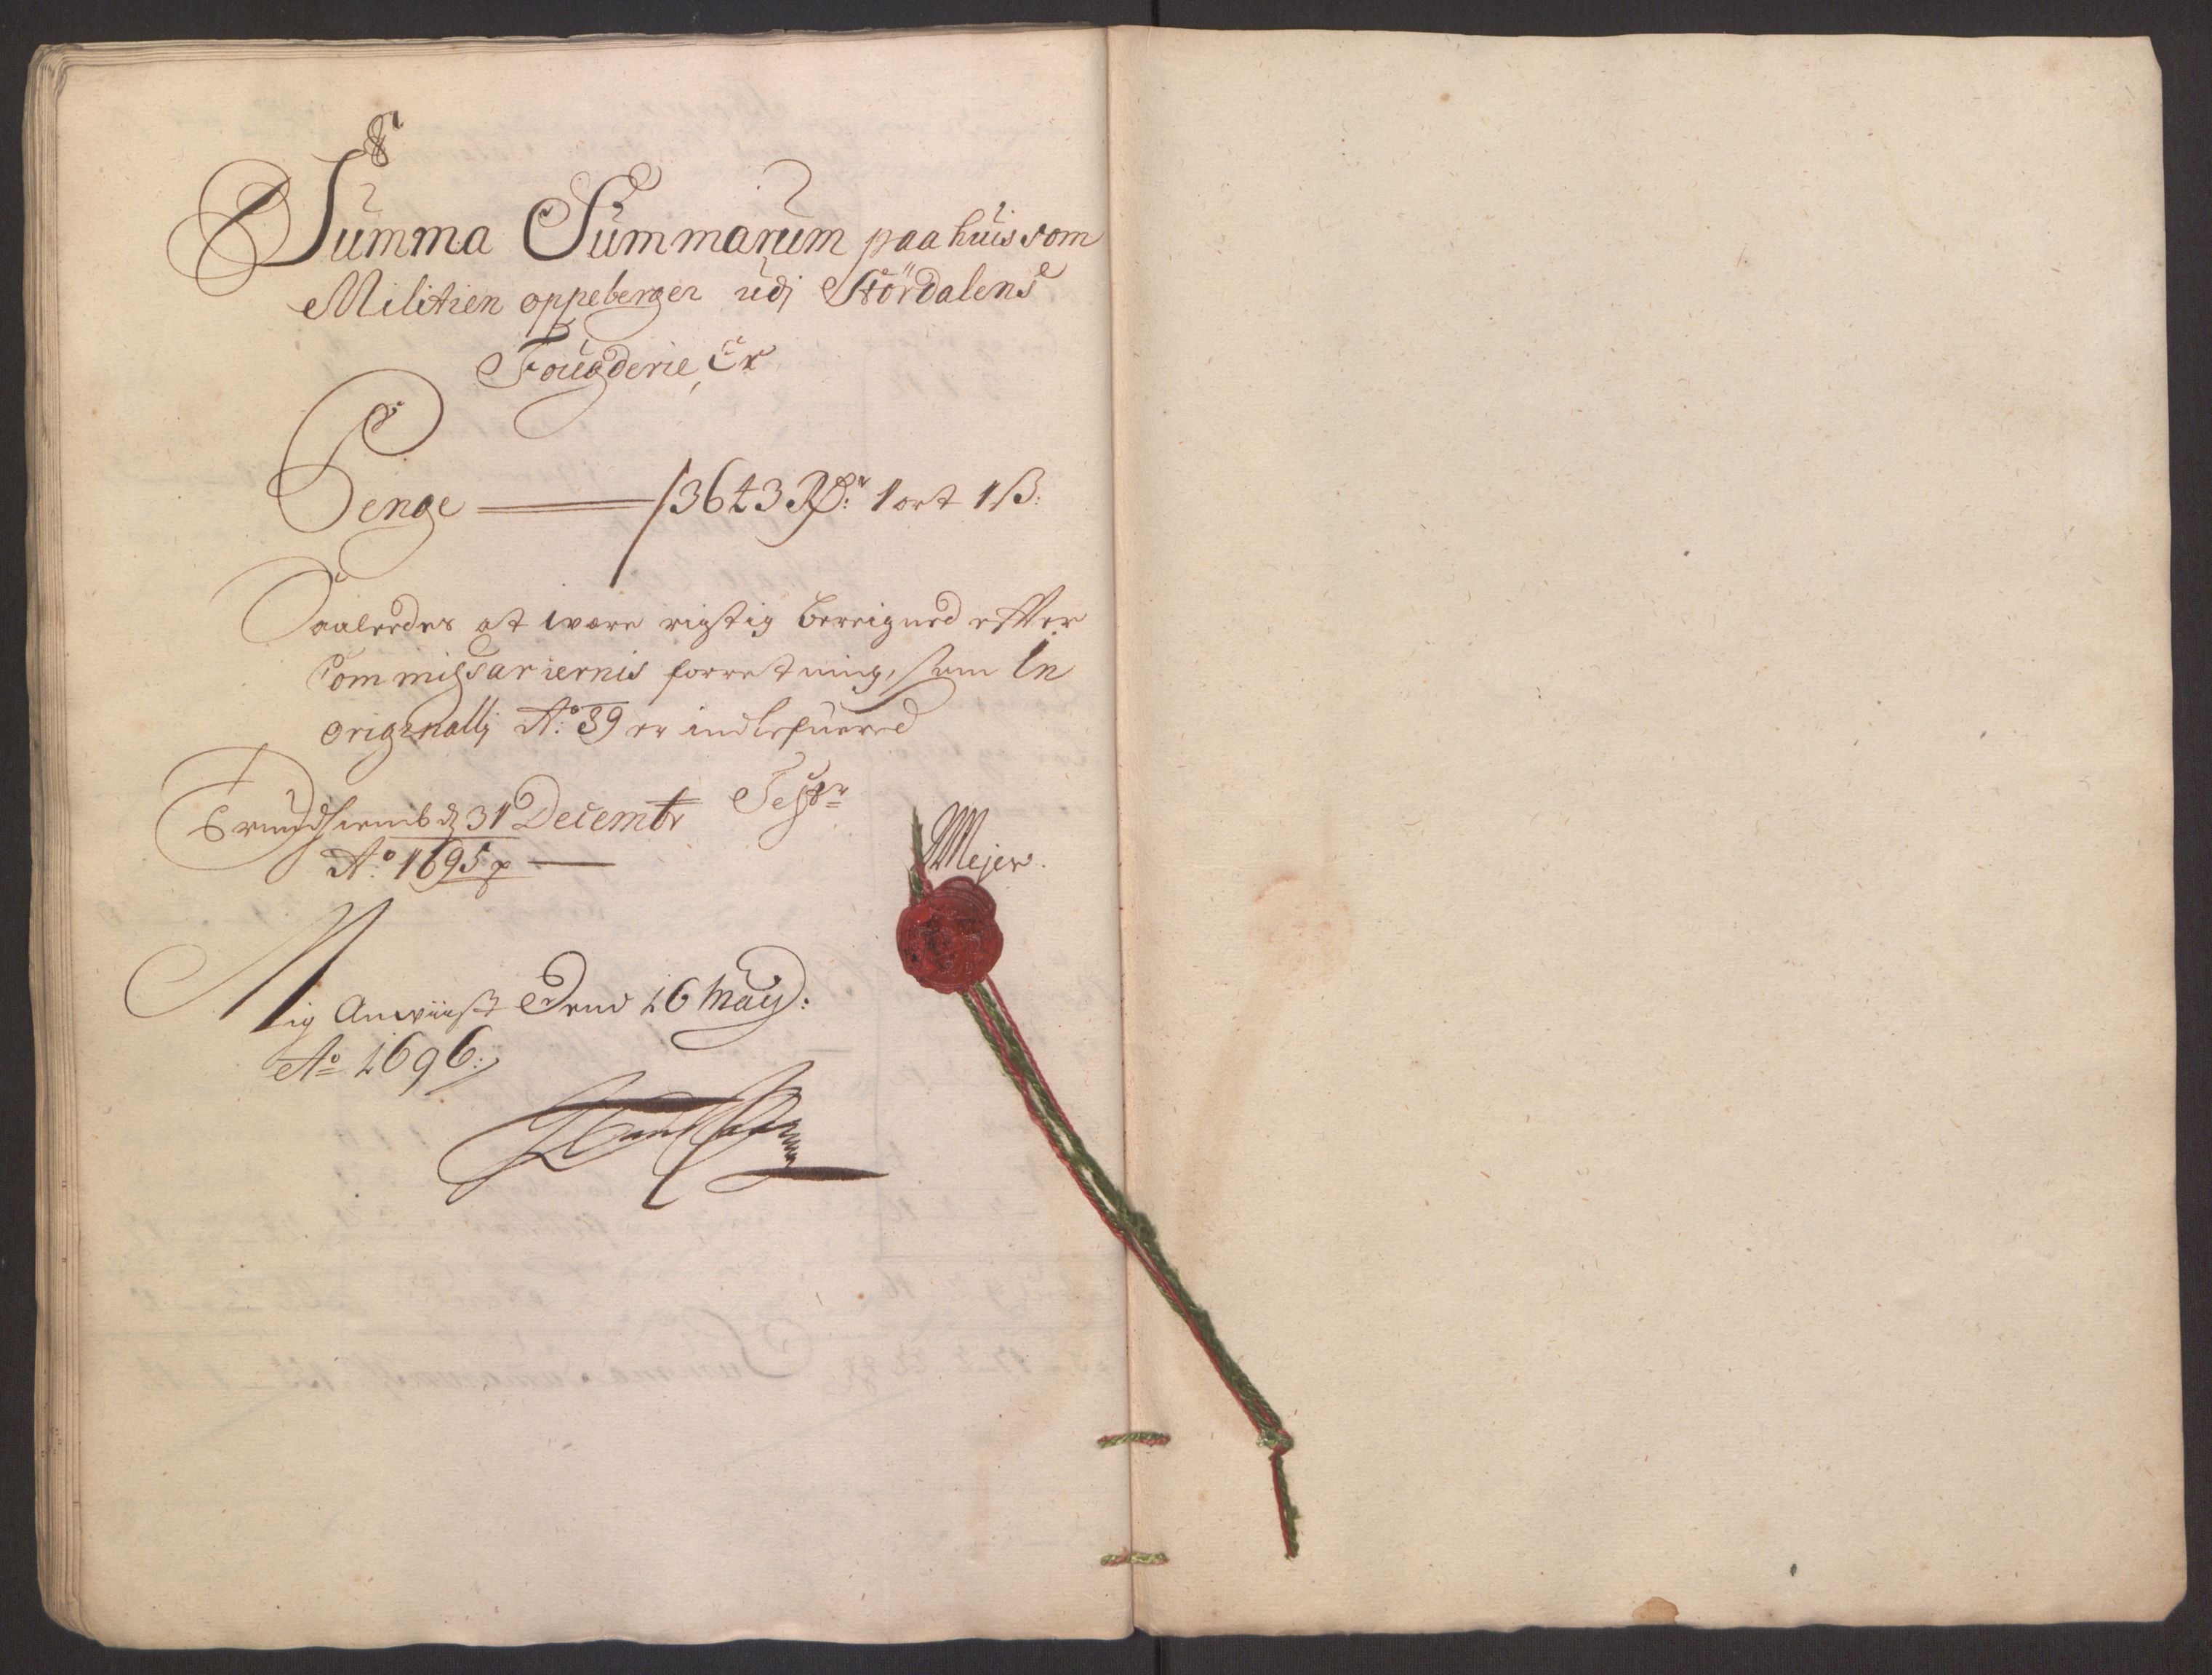 Summa Summarum paa huis som
Militien oppeberger udj Stördalens
Fougderie, Er
Penge 3643 Rdr: 1 ort 1 ß:
Saaleedes at være rigtig bereigned efter
Commissariernis forretning, som in
originallj Ao: 89 er indlefuered
Trundhiemb d 31 Decembr Test
Ao: 1695
Mejer.
Mig Anviist Dend 16 Maÿ:
Ao 1696: